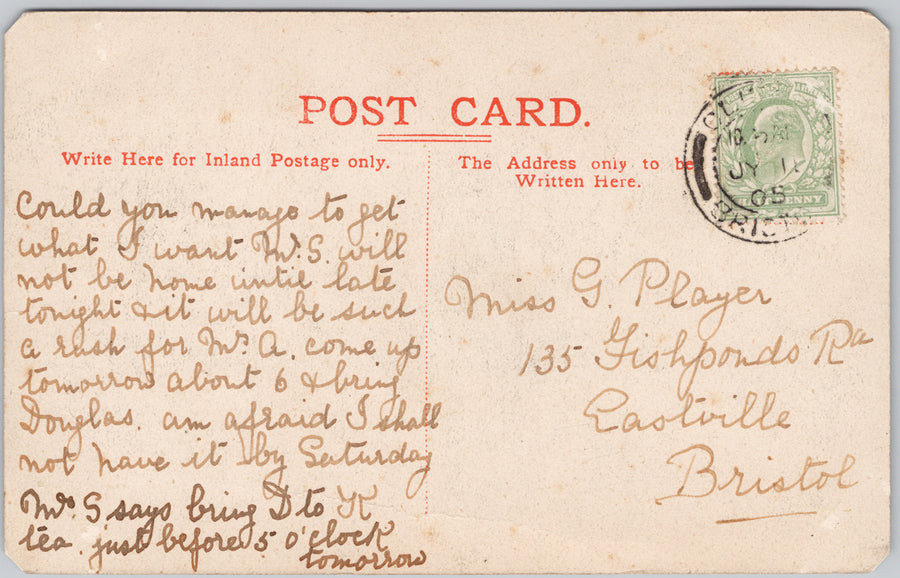 POST CARD.
Write Here for Inland Postage only.
The Address only to be
Written Here.
Could you manage to get
what I want Mr. S. will
not be home until late
tonight & it will be such
a rush for Mr. A. come up
tomorrow about 6 & bring
Douglas. am afraid I shall
not have it by Saturday
Mrs S says bring D to K
tea. just before 5 o'clock
tomorrow
Miss G. Player
135 Fishponds Rd
Eastville
Bristol
JY 11
05
PENNY